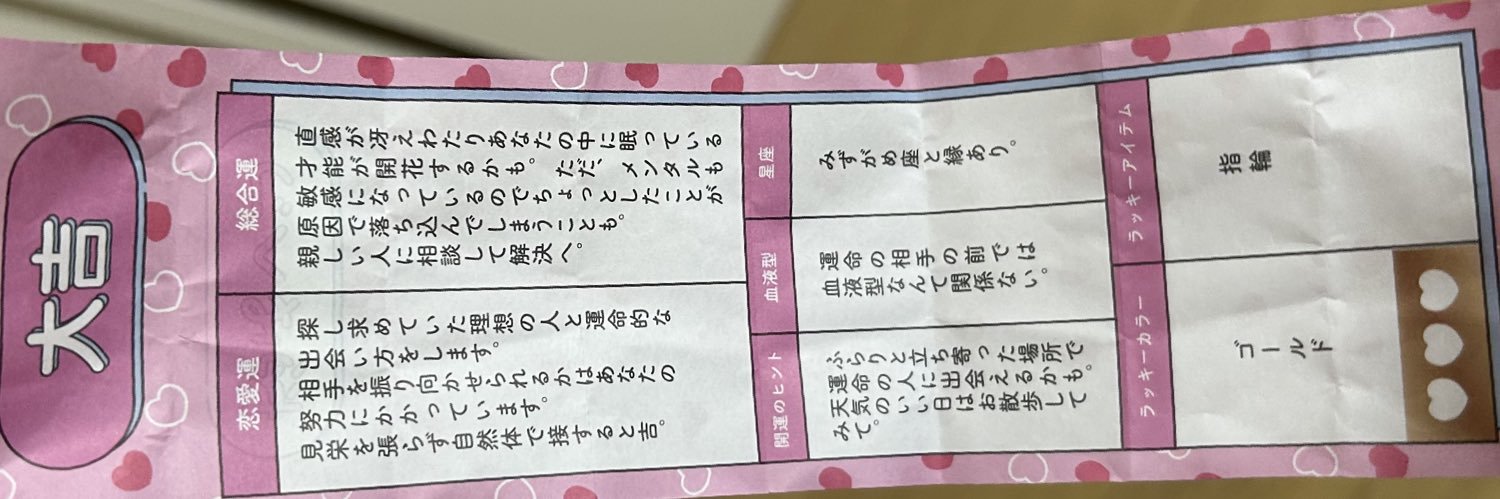 大吉
総合運
直感が冴えわたりあなたの中に眠っている
才能が開花するかも。ただ、メンタルも
敏感になっているのでちょっとしたことが
原因で落ち込んでしまうことも。
親しい人に相談して解決へ。
恋愛運
探し求めていた理想の人と運命的な
出会い方をします。
相手を振り向かせられるかはあなたの
努力にかかっています。
見栄を張らず自然体で接すると吉。
星座
みずがめ座と縁あり。
血液型
運命の相手の前では
血液型なんて関係ない。
開運のヒント
ふらりと立ち寄った場所で
運命の人に出会えるかも。
天気のいい日はお散歩して
みて。
ラッキーアイテム
指輪
ラッキーカラー
ゴールド